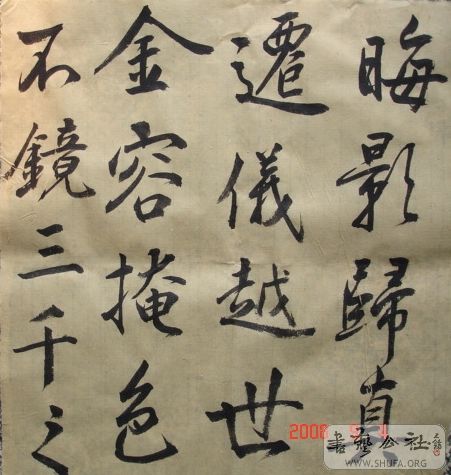 晦影歸真
遷儀越世
金容掩色
不鏡三千之
2006
書藝公社
WWW.SHUFA.ORG